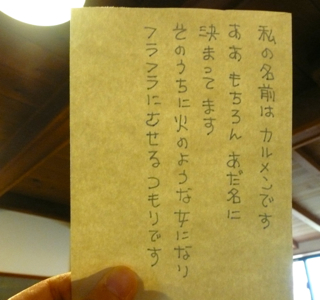 私の名前は カルメンです
ああ もちろん あだ名に
決まってます
そのうちに火のような女になり
フラフラにむせる つもりです